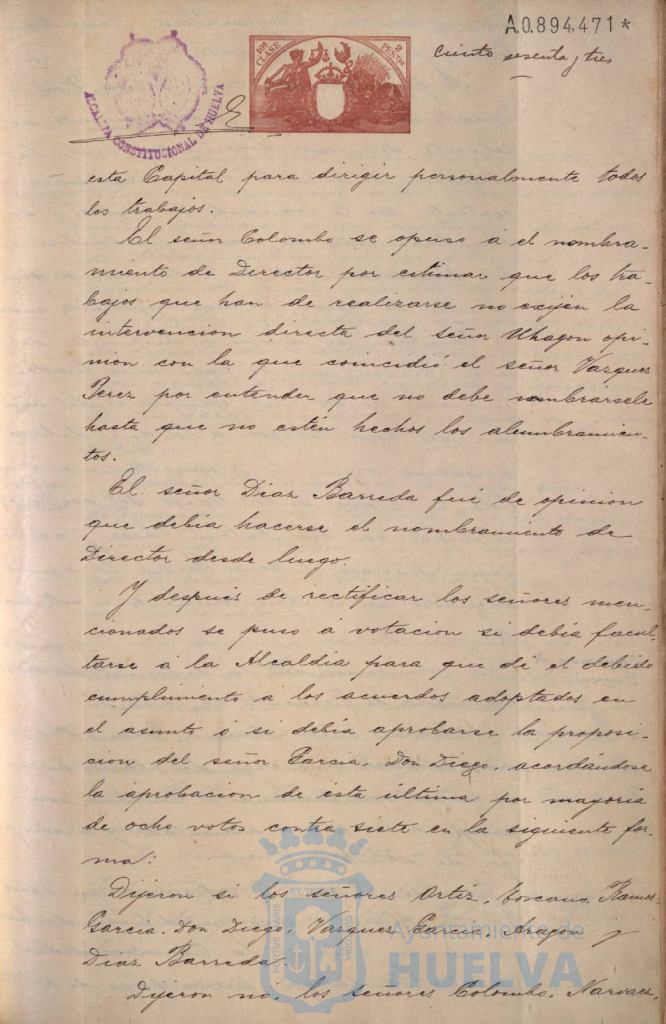 A.0.894.471*
Ciento sesenta y tres
10ª CLASE
2 PESETAS
ALCALDIA CONSTITUCIONAL DE HUELVA
esta Capital para dirigir personalmente todos
los trabajos.
El señor Colombo se opuso á el nombra-
miento de Director por estimar que los tra-
bajos que han de realizarse no exijen la
intervencion directa del señor Uhagon opi-
nion con la que coincidió el señor Vazquez
Perez por entender que no debe nombrarsele
hasta que no estén hechos los alumbramien-
tos.
El señor Diaz Barreda fué de opinion
que debia hacerse el nombramiento de
Director desde luego.
Y después de rectificar los señores men-
cionados se puso á votacion si debía facul-
tarse á la Alcaldía para que dé el debido
cumplimiento á los acuerdos adoptados en
el asunto ó si debía aprobarse la proposi-
cion del señor Garcia, Don Diego, acordándose
la aprobacion de ésta última por mayoria
de ocho votos contra siete en la siguiente for-
ma:
Dijeron si los señores Ortiz, Toscano, Ramos,
Garcia, Don Diego, Vazquez, Garcia, Aragon y
Diaz Barreda.
Dijeron no, los señores Colombo, Narvaez,
Ayuntamiento de
HUELVA